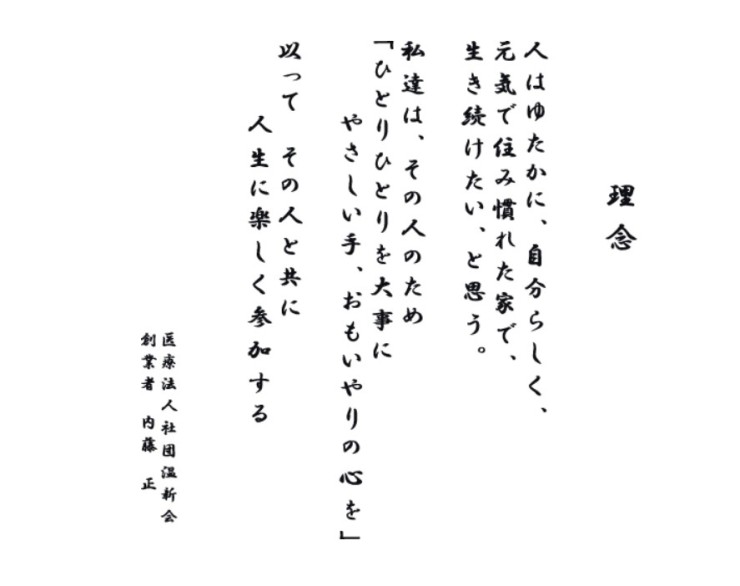 理念
人はゆたかに、自分らしく、
元気で住み慣れた家で、
生き続けたい、と思う。
私達は、その人のため
「ひとりひとりを大事に
やさしい手、おもいやりの心を」
以って その人と共に
人生に楽しく参加する
医療法人社団温新会
創業者 内藤 正